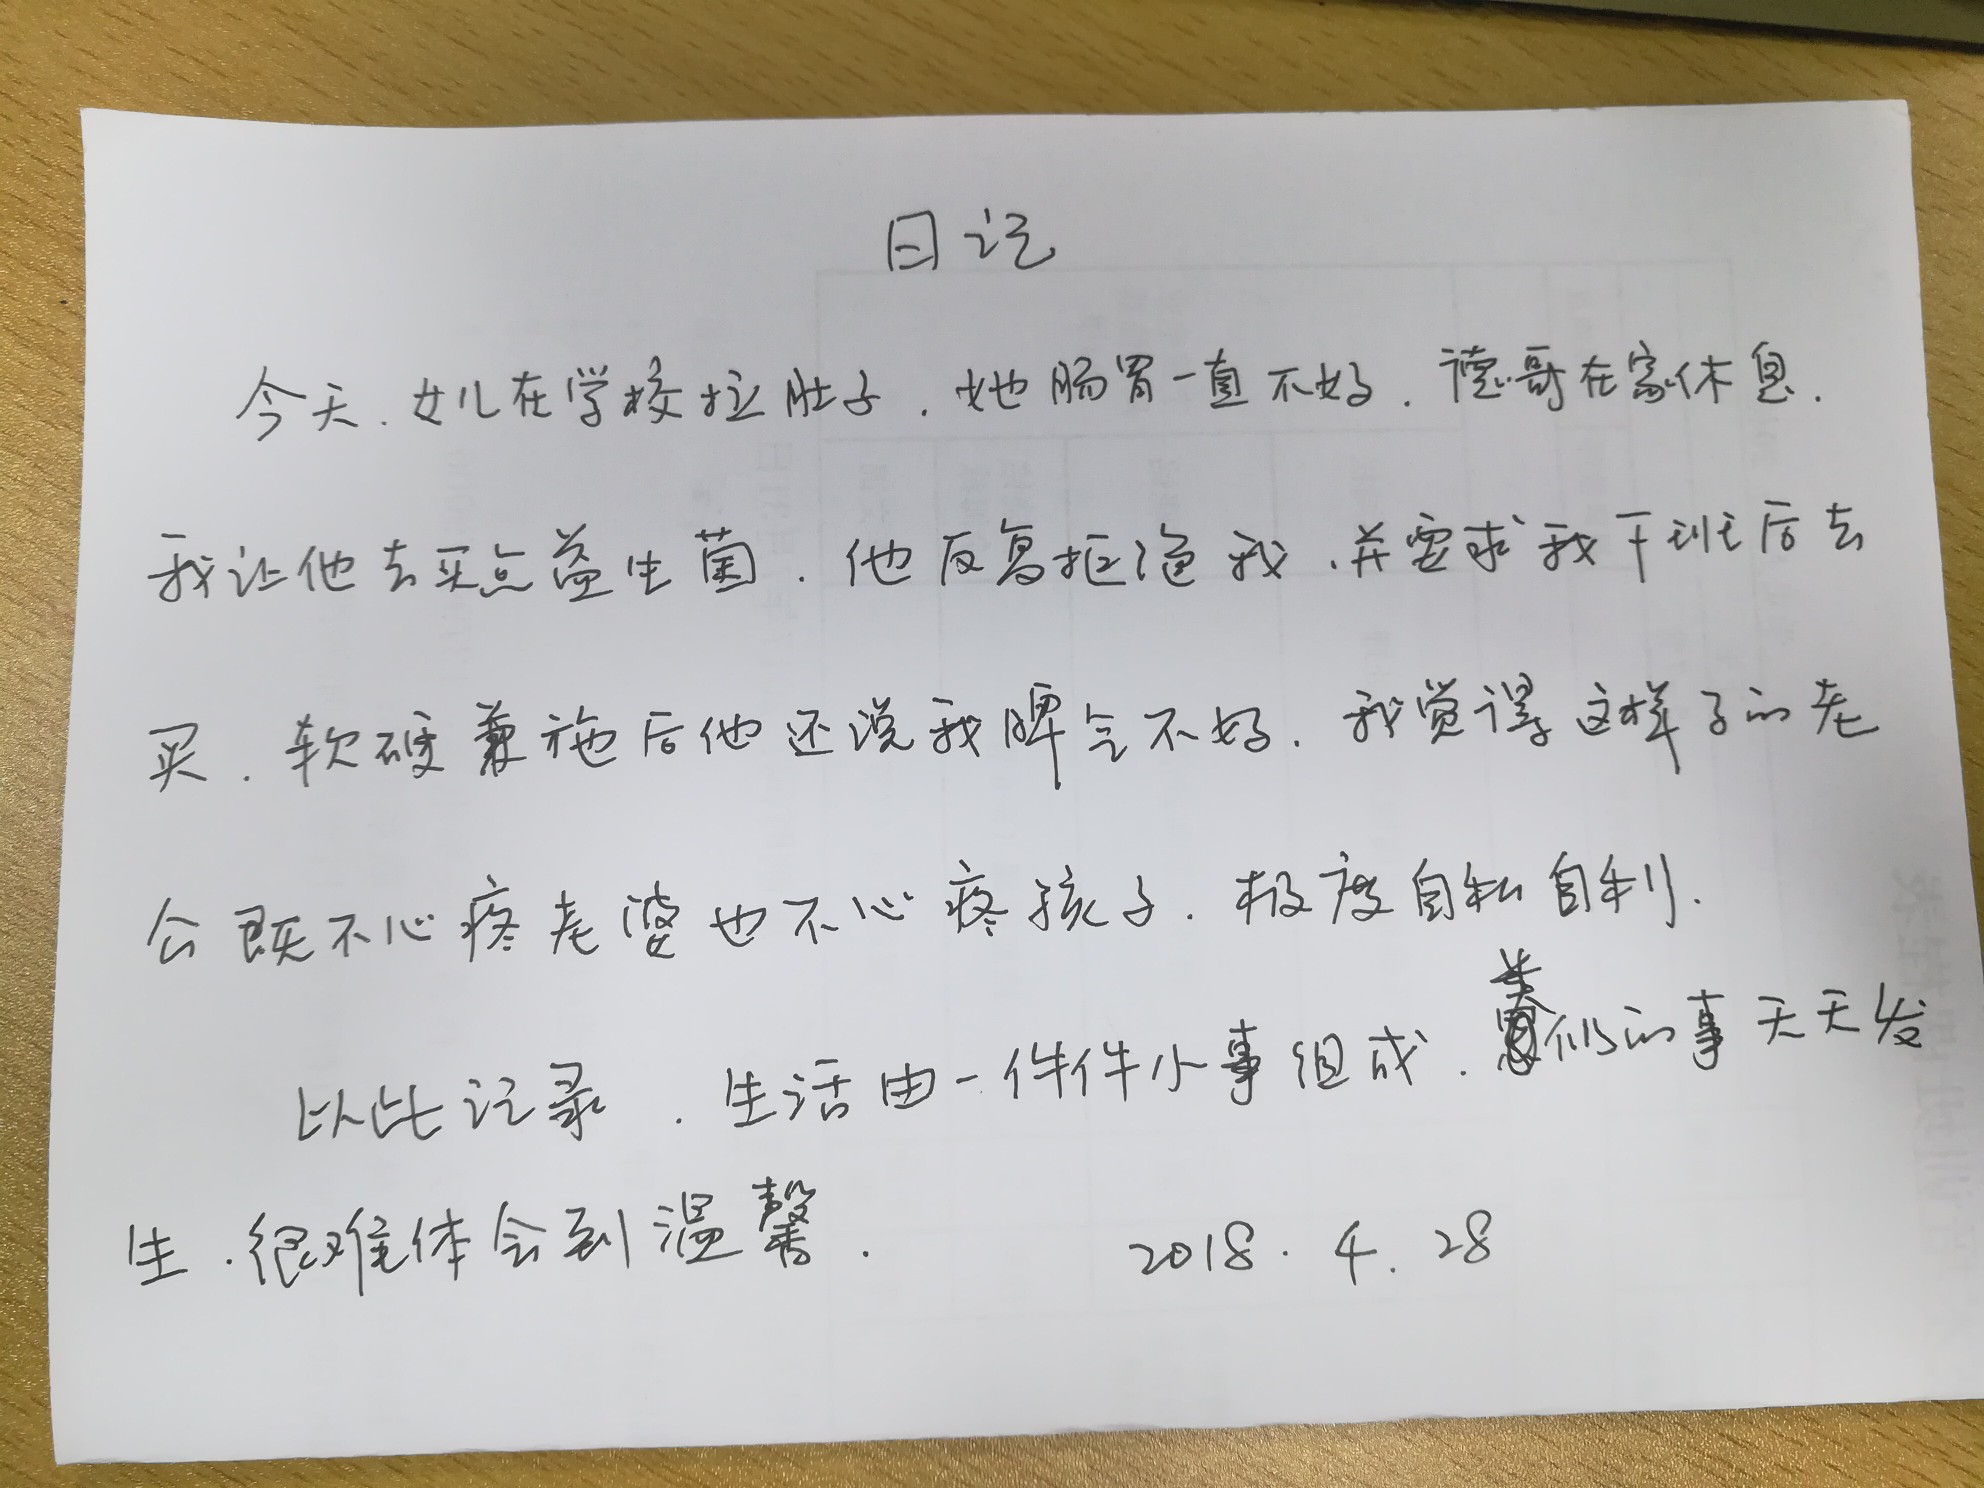 日记
今天.女儿在学校拉肚子.她肠胃一直不好.德哥在家休息.
我让他去买点益生菌.他反复拒绝我.并要求我下班后去
买.软硬兼施后他还说我脾气不好.我觉得这样子的老
公既不心疼老婆也不心疼孩子.极度自私自利.
以此记录.生活由一件件小事组成.类似的事天天发
生.很难体会到温馨.
2018.4.28